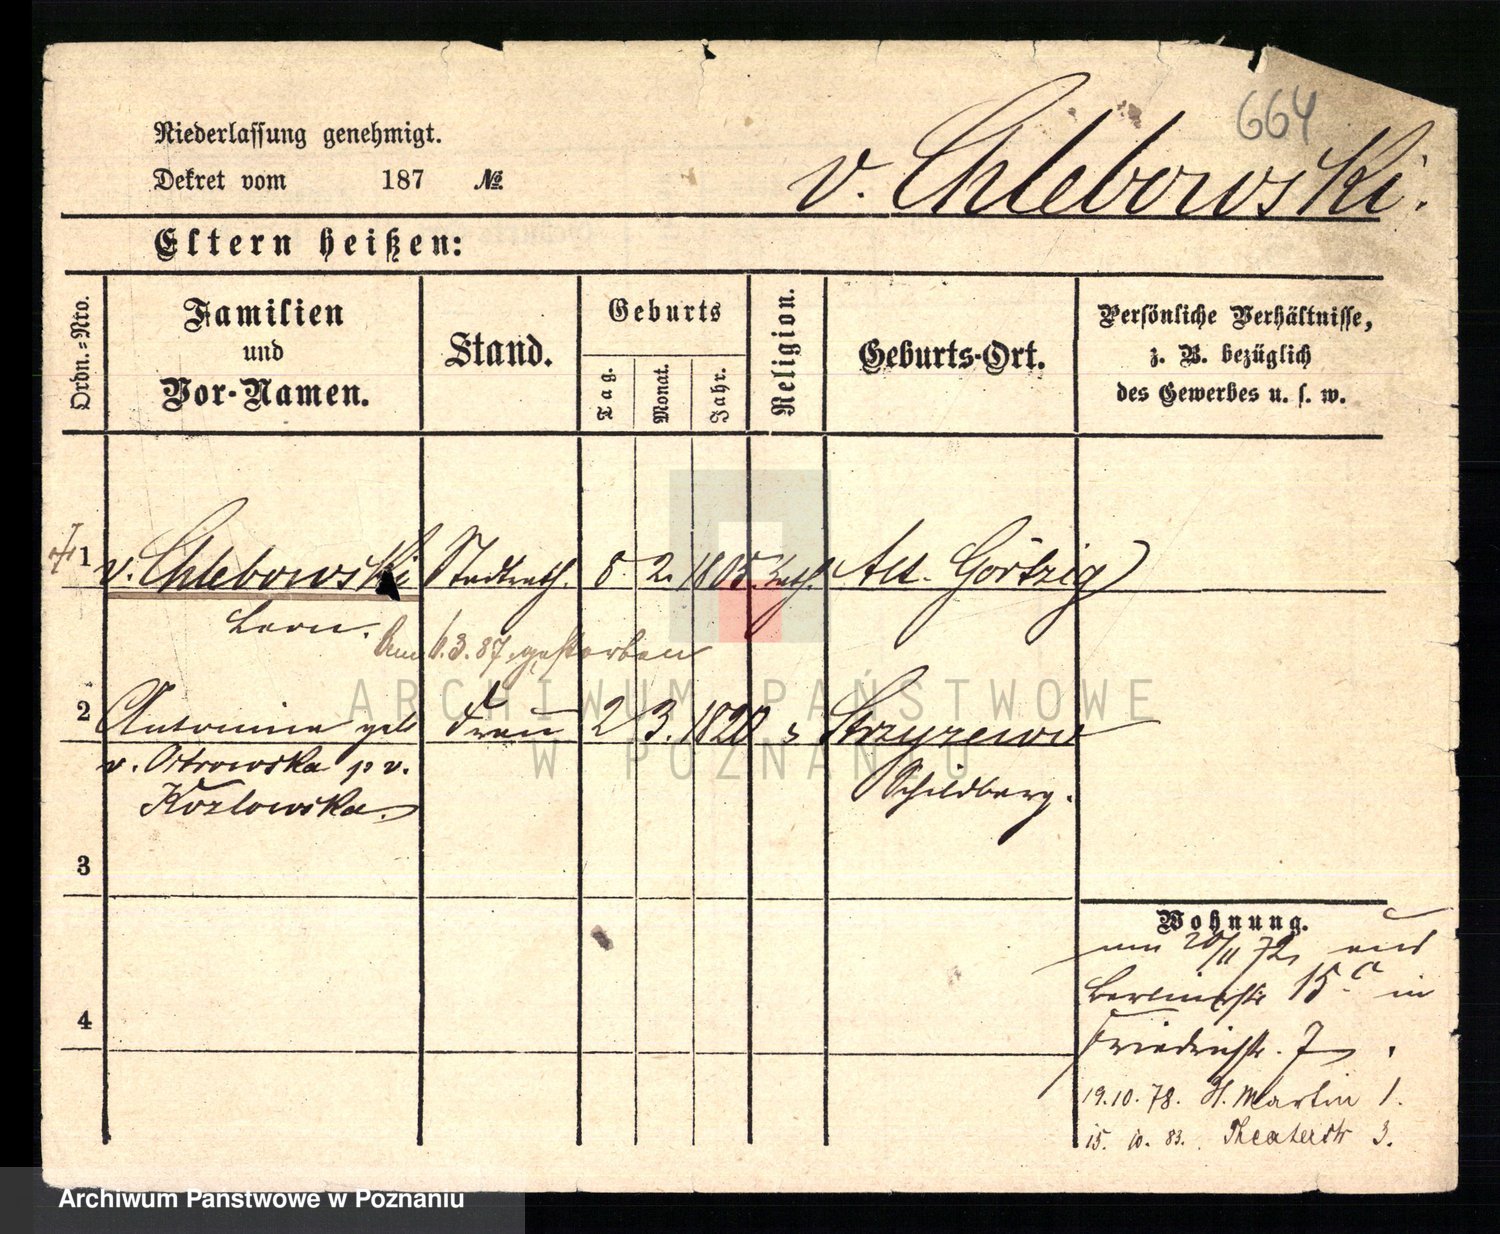 664
Niederlassung genehmigt.
Dekret vom 187 №
v. Chlebowski.
Eltern heißen:
Ordn.=Nro.
Familien
und
Vor-Namen.
Stand.
Geburts
Tag.
Monat.
Jahr.
Religion.
Geburts-Ort.
Persönliche Verhältnisse,
z. B. bezüglich
des Gewerbes u. s. w.
1 v. Chlebowski Stadtrath. 8. 2. 1805. kath. Alt. Görtzig
Leon.
Am 6.3.87. gestorben
2 Antonina geb Frau 2 3. 1820 Strzyzewo
v. Ostrowska p v. Schildberg.
Kozlowska.
3
4
Wohnung.
20/11 72
Berlinerstr 15.a in
Friedrichstr. 7
19.10.78. St. Martin 1.
15. 10. 83. Theaterstr 3.
ARCHIWUM PAŃSTWOWE
W POZNANIU
Archiwum Państwowe w Poznaniu